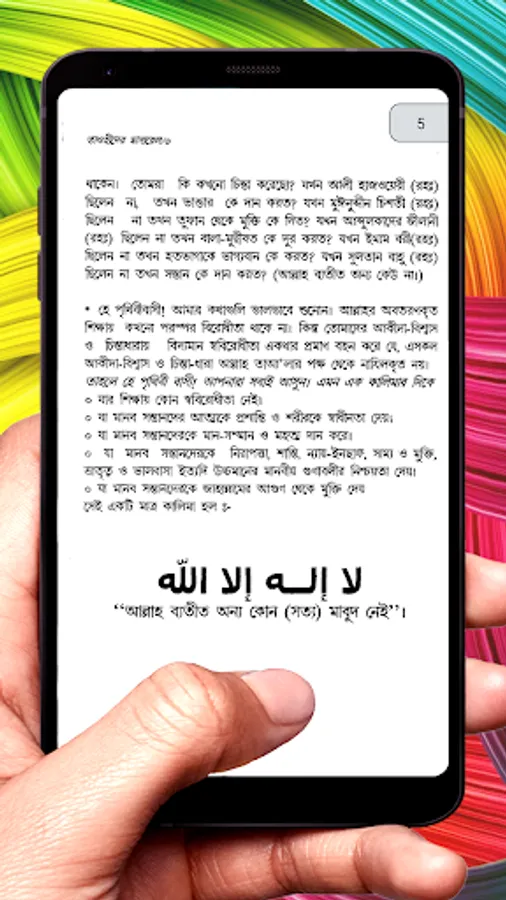 5
তাওহীদের মাসায়েল/৬
থাকেন। তোমরা কি কখনো চিন্তা করেছো? যখন আলী হাজওয়েরী (রহঃ)
ছিলেন না, তখন ভান্ডার কে দান করত? যখন মুঈনুদ্দীন চিশতী (রহঃ)
ছিলেন না তখন তুফান থেকে মুক্তি কে দিত? যখন আব্দুলকাদের জীলানী
(রহঃ) ছিলেন না তখন বালা-মুছীবত কে দূর করত? যখন ইমাম বরী(রহঃ)
ছিলেন না তখন হতভাগাকে ভাগ্যবান কে করত? যখন সুলতান বাহু (রহঃ)
ছিলেন না তখন সন্তান কে দান করত? (আল্লাহ ব্যতীত অন্য কেউ না।)
* হে পৃথিবীবাসী! আমার কথাগুলি ভালভাবে শুনোন। আল্লাহর অবতরণকৃত
শিক্ষায় কখনো পরস্পর বিরোধীতা থাকে না। কিন্তু তোমাদের আকীদা-বিশ্বাস
ও চিন্তাধারায় বিদ্যমান স্ববিরোধীতা একথার প্রমাণ বহন করে যে, এসকল
আকীদা-বিশ্বাস ও চিন্তা-ধারা আল্লাহ তাআ'লার পক্ষ থেকে নাযিলকৃত নয়।
তাহলে হে পৃথিবী বাসী! আপনারা সবাই আসুন! এমন এক কালিমার দিকে
o যার শিক্ষায় কোন স্ববিরোধীতা নেই।
o যা মানব সন্তানদের আত্মাকে প্রশান্তি ও শরীরকে স্বাধীনতা দেয়।
o যা মানব সন্তানদেরকে মান-সম্মান ও মহত্ম দান করে।
o যা মানব সন্তানদেরকে নিরাপত্তা, শান্তি, ন্যায়-ইনছাফ, সাম্য ও মুক্তি,
ভ্রাতৃত্ব ও ভালবাসা ইত্যাদি উচ্চমানের মানবীয় গুণাবলীর নিশ্চয়তা দেয়।
o যা মানব সন্তানদেরকে জাহান্নামের আগুণ থেকে মুক্তি দেয়
সেই একটি মাত্র কালিমা হল ঃ-
لا إلــه إلا الله
“আল্লাহ ব্যতীত অন্য কোন (সত্য) মাবুদ নেই”।